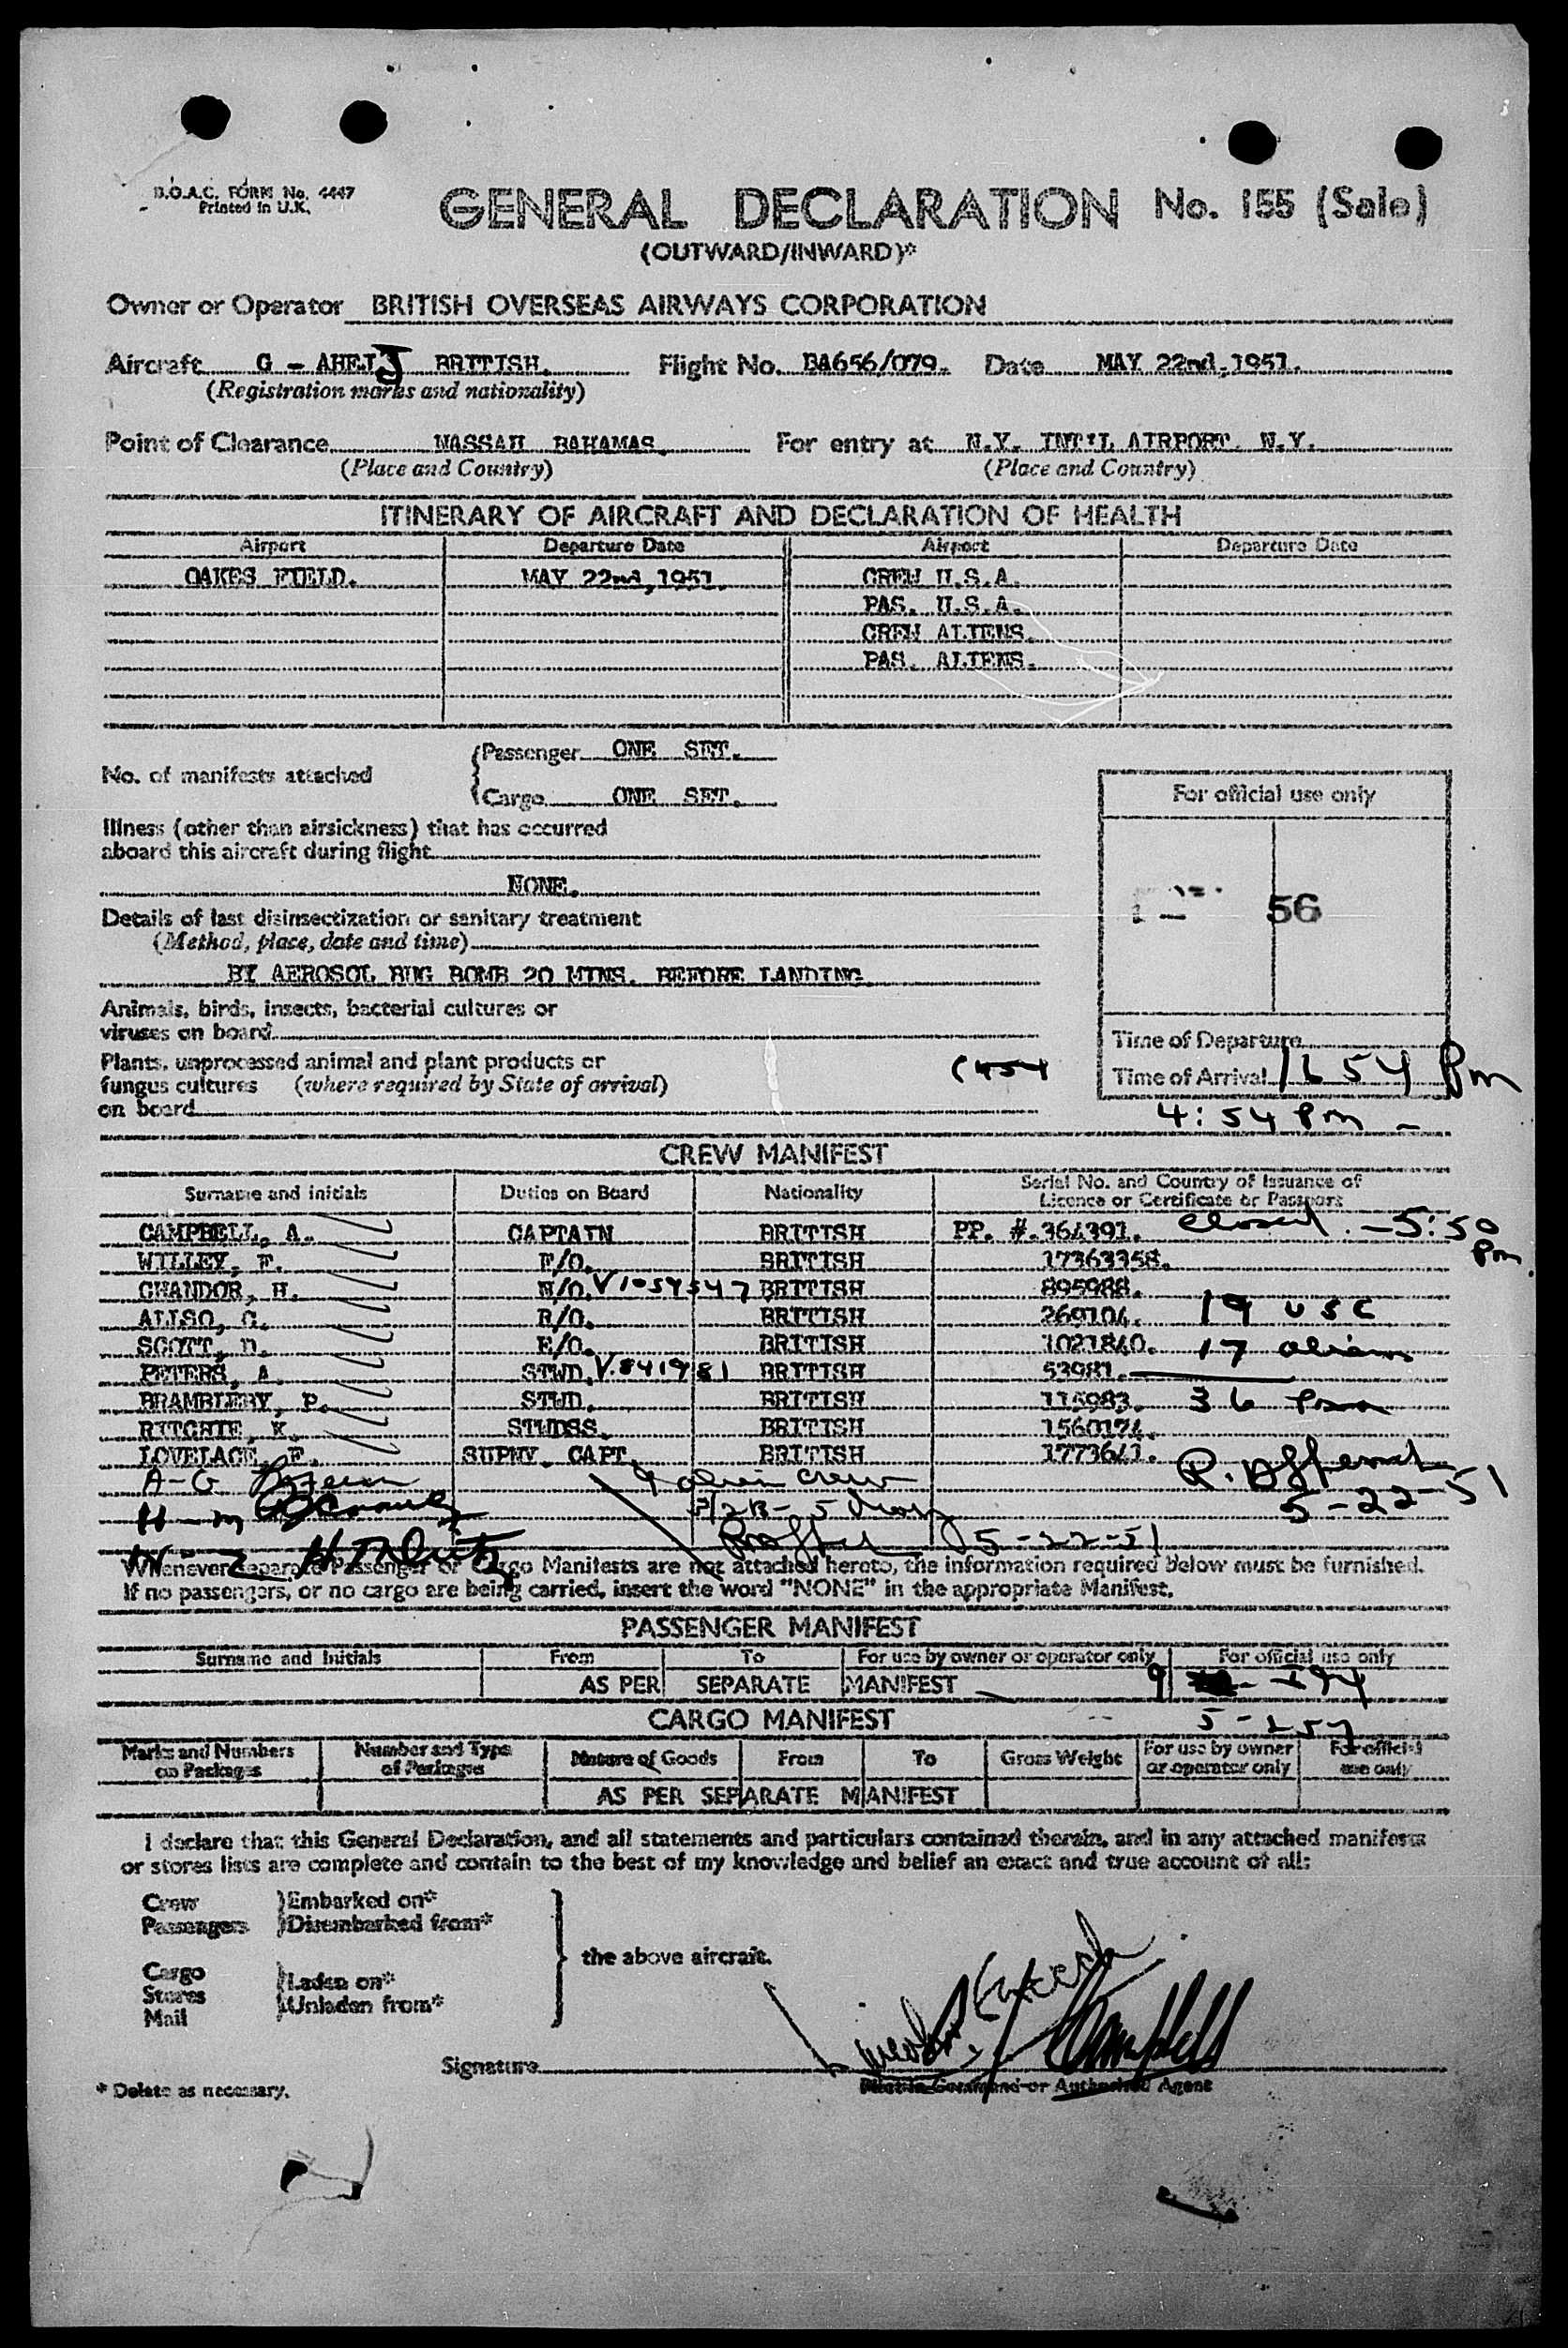 B.O.A.C. FORM No. 4447
Printed in U.K.
GENERAL DECLARATION No. 155 (Sale)
(OUTWARD/INWARD)*
Owner or Operator BRITISH OVERSEAS AIRWAYS CORPORATION
Aircraft G - AHEJ BRITISH. Flight No. BA656/079. Date MAY 22nd, 1951.
(Registration marks and nationality)
Point of Clearance NASSAU BAHAMAS. For entry at N.Y. INT'L AIRPORT, N.Y.
(Place and Country) (Place and Country)
ITINERARY OF AIRCRAFT AND DECLARATION OF HEALTH
Airport Departure Date Airport Departure Date
OAKES FIELD. MAY 22nd, 1951. CREW U.S.A.
PAS. U.S.A.
CREW ALIENS.
PAS. ALIENS.
No. of manifests attached
Passenger ONE SET.
Cargo ONE SET.
For official use only
Illness (other than airsickness) that has occurred
aboard this aircraft during flight
NONE.
56
Details of last disinsectization or sanitary treatment
(Method, place, date and time)
BY AEROSOL BUG BOMB 20 MINS. BEFORE LANDING
Animals, birds, insects, bacterial cultures or
viruses on board
Time of Departure
Plants, unprocessed animal and plant products or
fungus cultures (where required by State of arrival)
on board
Time of Arrival 1654 Pm
4:54 Pm -
CREW MANIFEST
Surname and initials Duties on Board Nationality Serial No. and Country of Issuance of
Licence or Certificate or Passport
closed - 5:50 Pm
CAMPBELL, A. CAPTAIN BRITISH PP. #.364391.
WILLEY, F. F/O. BRITISH 17363358.
CHANDOR, H. N/O. V1054547 BRITISH 895988.
ALLSO, C. R/O. BRITISH 269104. 19 USC
SCOTT, D. E/O. BRITISH 1021840. 17 aliens
PETERS, A. STWD. V.841981 BRITISH 53981.
BRAMBLEBY, P. STWD. BRITISH 115983. 36
RITCHIE, K. STWDSS. BRITISH 1560174.
LOVELACE, F. SUPNY. CAPT. BRITISH 1773641.
A-G 9 alien crew
H-M
5-22-51
5-22-51
Whenever separate Passenger or Cargo Manifests are not attached hereto, the information required below must be furnished.
If no passengers, or no cargo are being carried, insert the word "NONE" in the appropriate Manifest.
PASSENGER MANIFEST
Surname and Initials From To For use by owner or operator only For official use only
AS PER SEPARATE MANIFEST
CARGO MANIFEST
Marks and Numbers on Packages Number and Type of Packages Nature of Goods From To Gross Weight For use by owner or operator only For official use only
AS PER SEPARATE MANIFEST
I declare that this General Declaration, and all statements and particulars contained therein, and in any attached manifests
or stores lists are complete and contain to the best of my knowledge and belief an exact and true account of all:
Crew Embarked on*
Passengers Disembarked from*
the above aircraft.
Cargo
Stores
Mail
Laden on*
Unladen from*
Campbell
Signature
Pilot in Command or Authorised Agent
* Delete as necessary.